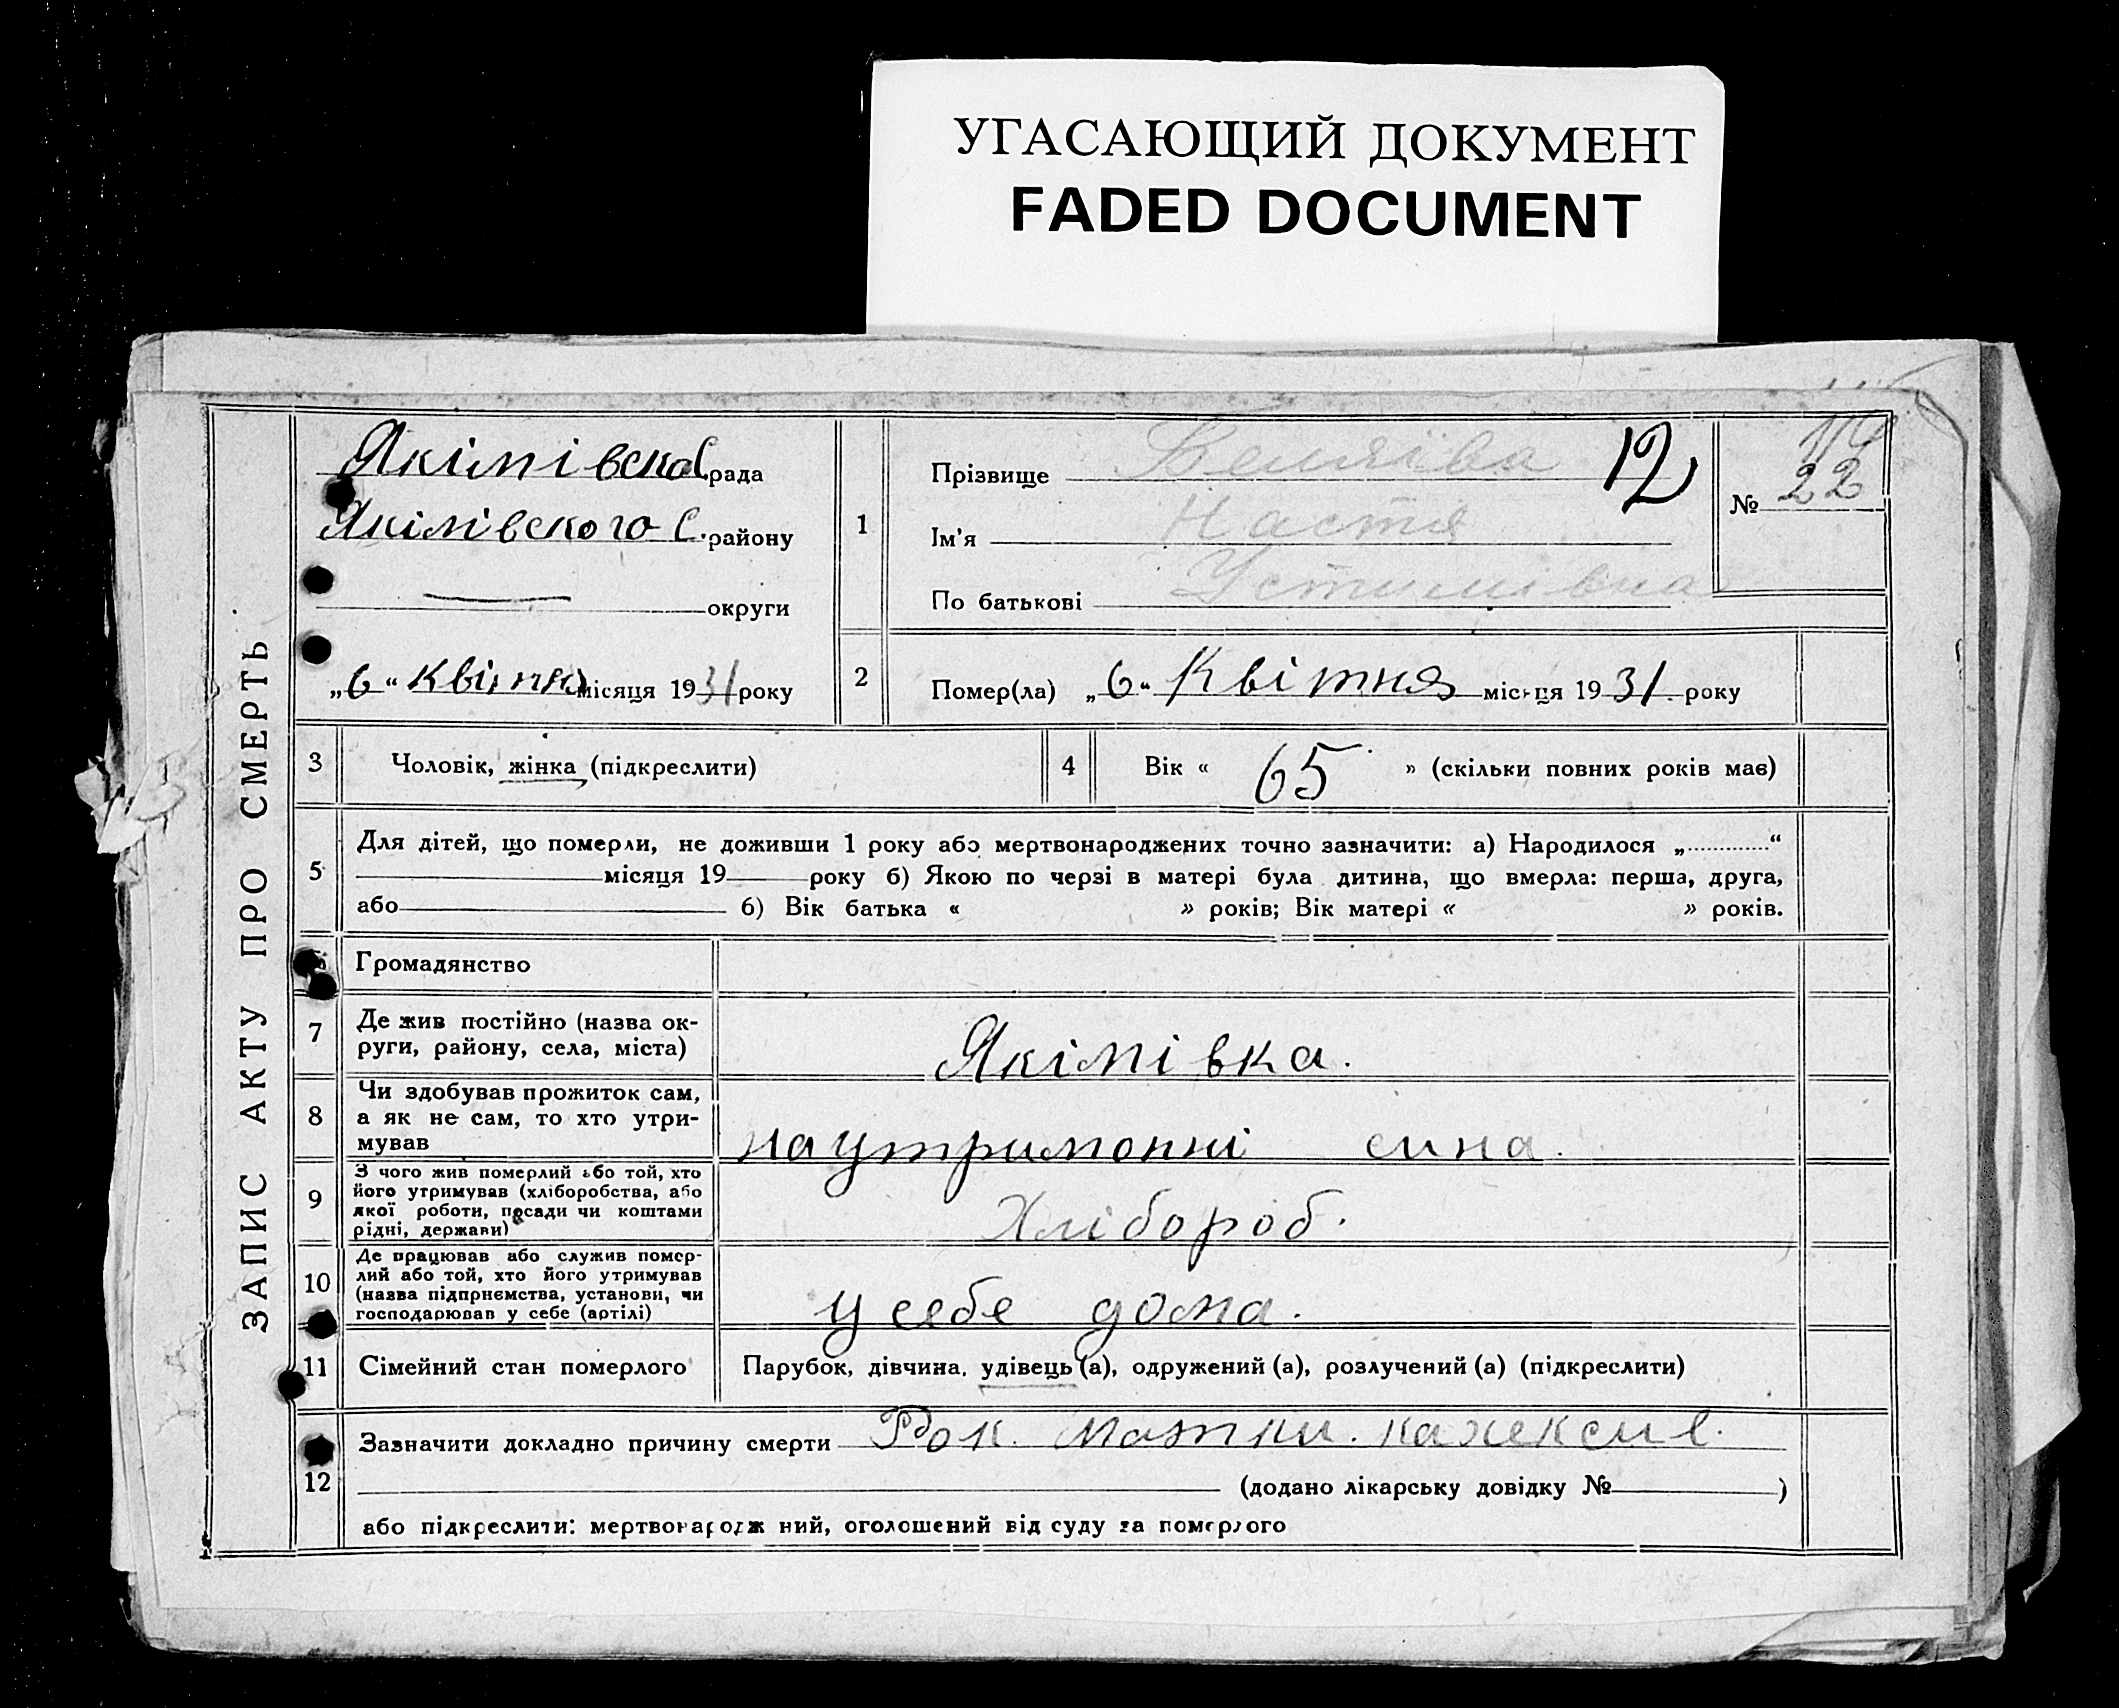 УГАСАЮЩИЙ ДОКУМЕНТ
FADED DOCUMENT
ЗАПИС АКТУ ПРО СМЕРТЬ
Якімівска С. рада
Якімівского С. району
округи
„6“ Квітня місяця 1931 року
1
Прізвище
12
Ім'я Настя
По батькові Устимівна
№ 22
2
Помер(ла) „6“ Квітня місяця 1931 року
3
Чоловік, жінка (підкреслити)
4
Вік « 65 » (скільки повних років має)
5
Для дітей, що померли, не доживши 1 року або мертвонароджених точно зазначити: а) Народилося „ “
місяця 19 року б) Якою по черзі в матері була дитина, що вмерла: перша, друга,
або б) Вік батька « » років; Вік матері « » років.
6
Громадянство
7
Де жив постійно (назва ок-
руги, району, села, міста)
Якімівка.
8
Чи здобував прожиток сам,
а як не сам, то хто утри-
мував
на утриманні сина.
9
З чого жив померлий або той, хто
його утримував (хліборобства, або
якої роботи, посади чи коштами
рідні, держави)
Хлібороб.
10
Де працював або служив помер-
лий або той, хто його утримував
(назва підприємства, установи, чи
господарював у себе (артілі)
у себе дома.
11
Сімейний стан померлого
Парубок, дівчина, удівець (а), одружений (а), розлучений (а) (підкреслити)
12
Зазначити докладно причину смерти Рак. Матки. кахексие.
(додано лікарську довідку № )
або підкреслити: мертвонародж ний, оголошений від суду за померлого